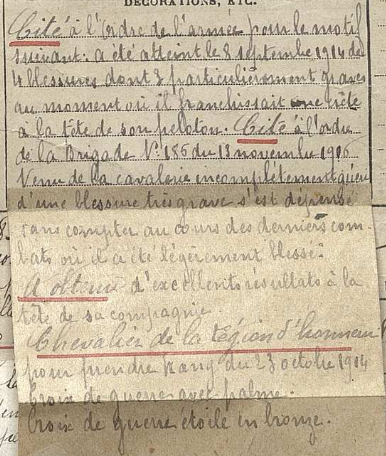 DÉCORATIONS, ETC.
Cité à l'ordre de l'armée pour le motif
suivant: a été atteint le 8 septembre 1914 de
4 blessures dont 3 particulièrement graves
au moment où il franchissait une crête
à la tête de son peloton. Cité à l'ordre
de la Brigade N° 186 du 13 novembre 1916
Venu de la cavalerie incomplètement guéri
d'une blessure très grave s'est dépensé
sans compter au cours des derniers com-
bats où il a été légèrement blessé:
A obtenu d'excellents résultats à la
tête de sa compagnie.
Chevalier de la Légion d'honneur
pour prendre rang du 23 octobre 1914
Croix de guerre avec palme.
Croix de guerre étoile en bronze.